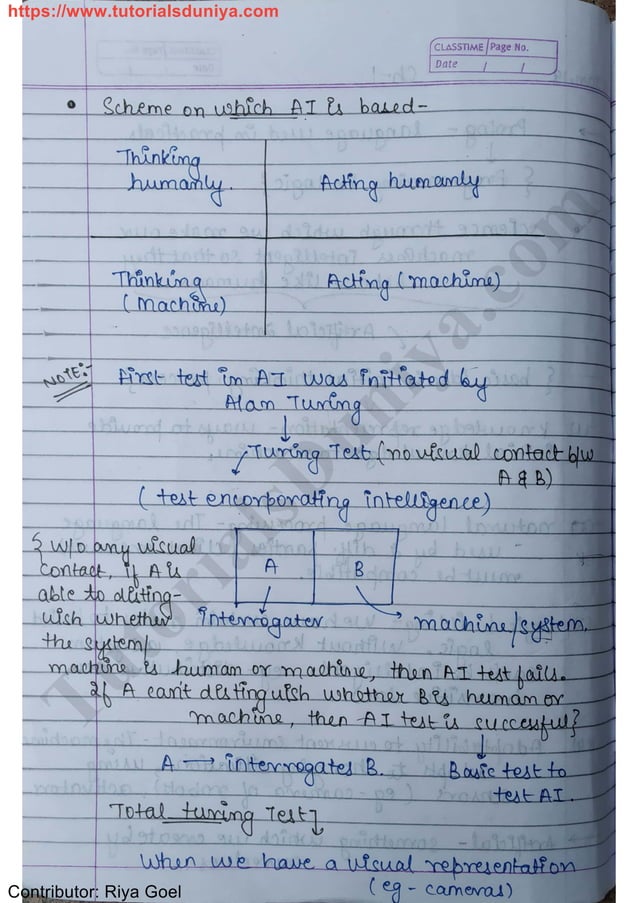 https://www.tutorialsduniya.com
CLASSTIME Page No.
Date / /
• Scheme on which AI is based-
Thinking humanly.
Acting humanly
Thinking (machine)
Acting (machine)
NOTE:-
First test in AI was initiated by
Alan Turing
↓
Turing Test (no visual contact b/w
A & B)
(test encorporating intelligence)
{ w/o any visual
contact, if A is
able to disting-
wish whether
the system/
A
B
interrogater
machine/system.
machine is human or machine, then AI test fails.
If A can't distinguish whether B is human or
machine, then AI test is successful}
A → interrogates B.
Basic test to
test AI.
Total turing Test
When we have a visual representation
(eg - cameras)
TutorialsDuniya.com
Contributor: Riya Goel